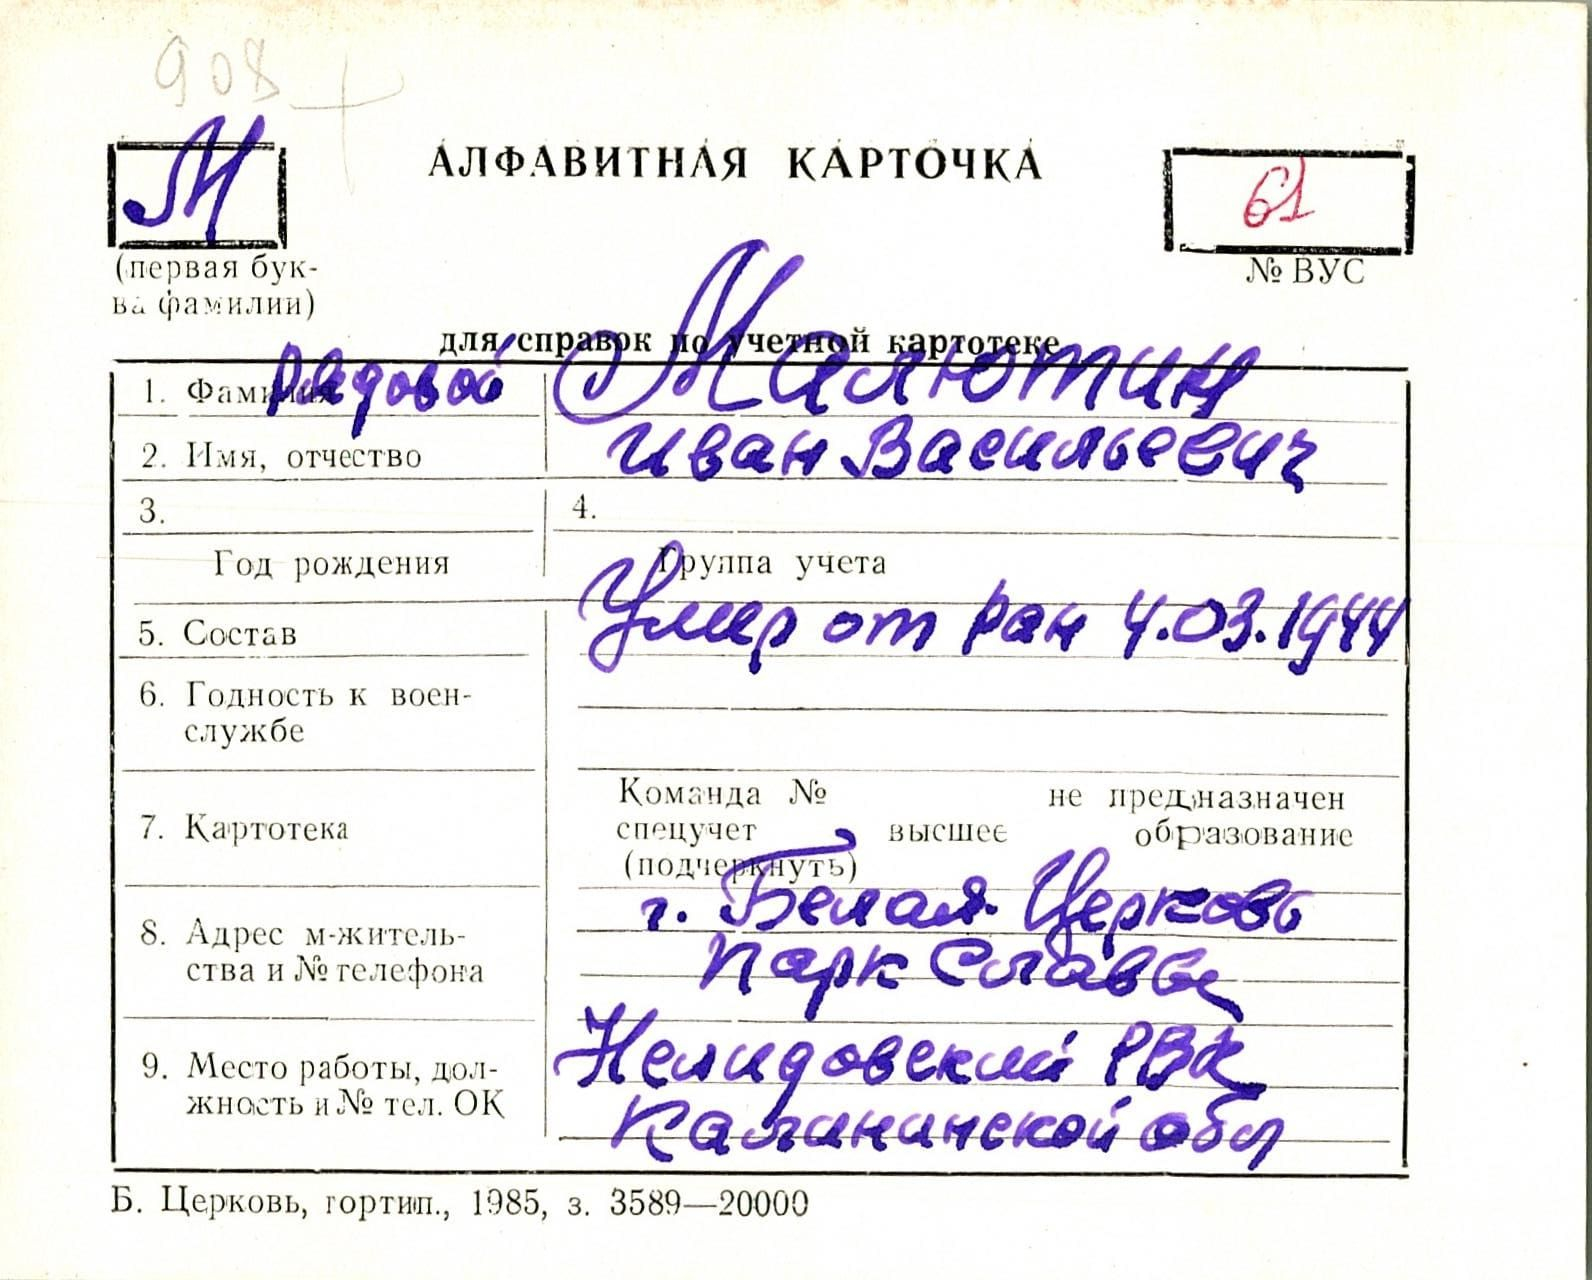 908
М
АЛФАВИТНАЯ КАРТОЧКА
61
(первая бук-
ва фамилии)
№ ВУС
для справок по учетной картотеке
1. Фамилия рядовой Малютин
2. Имя, отчество Иван Васильевич
3. 4.
Год рождения Группа учета
5. Состав Умер от ран 4.03.1944
6. Годность к воен-
службе
Команда № не предназначен
7. Картотека спецучет высшее образование
(подчеркнуть)
г. Белая Церковь
8. Адрес м-житель-
ства и № телефона Парк Славы
9. Место работы, дол- Нелидовский РВК
жность и № тел. ОК Калининской обл
Б. Церковь, гортип., 1985, з. 3589—20000